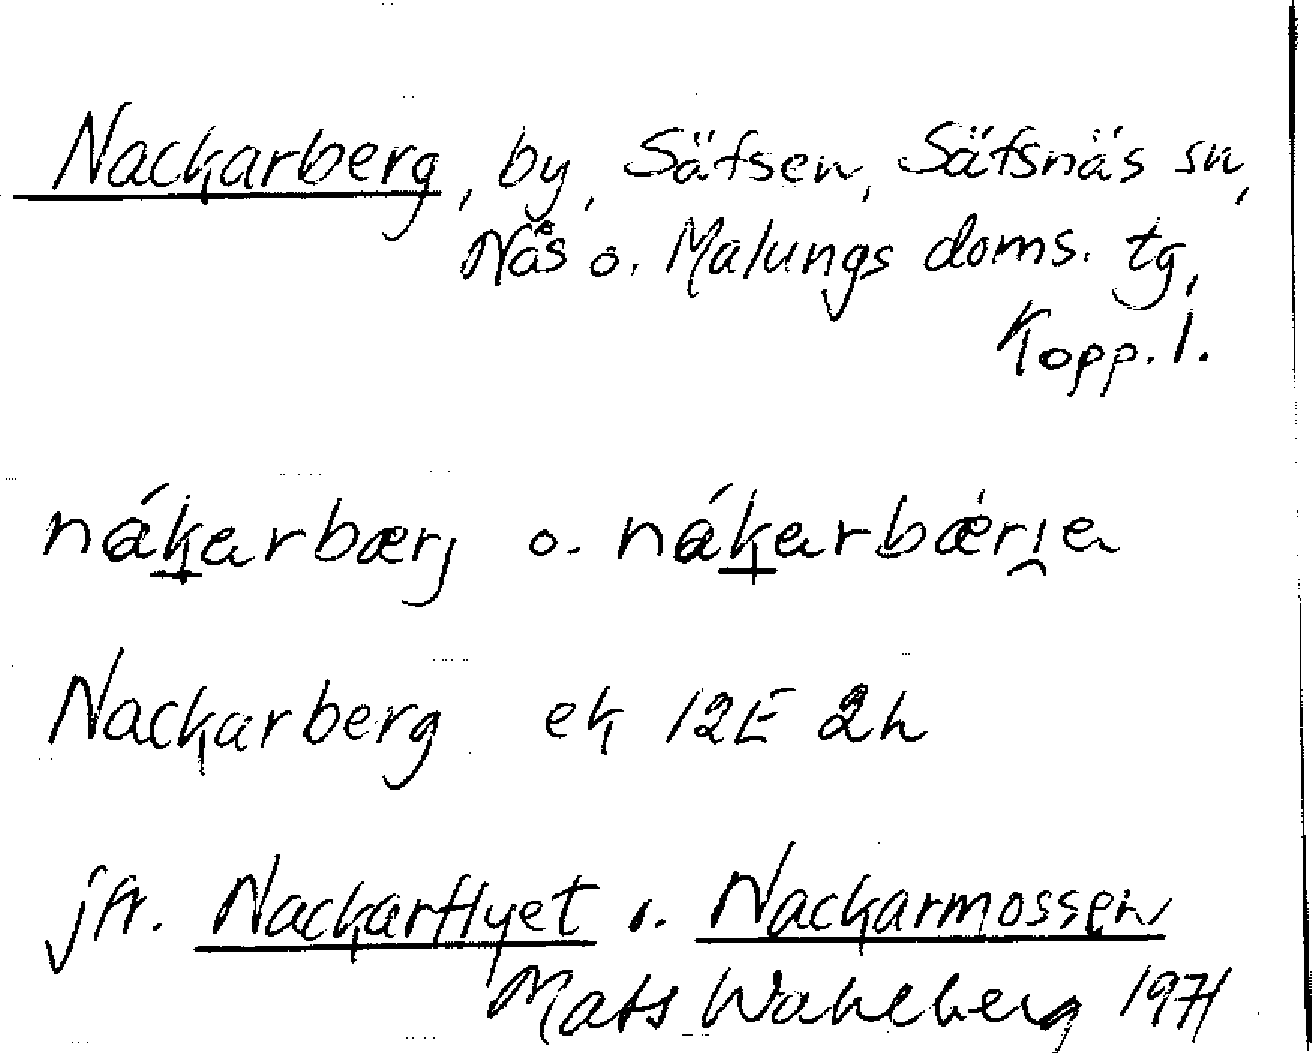 Nackarberg, by, Säfsen, Säfsnäs sn,
Nås o. Malungs doms. tg,
Kopp. l.
nákarbærj o. nákarbǽrja
Nackarberg ek 12E 2h
jfr. Nackarflyet o. Nackarmossen
Mats Wahlberg 1971